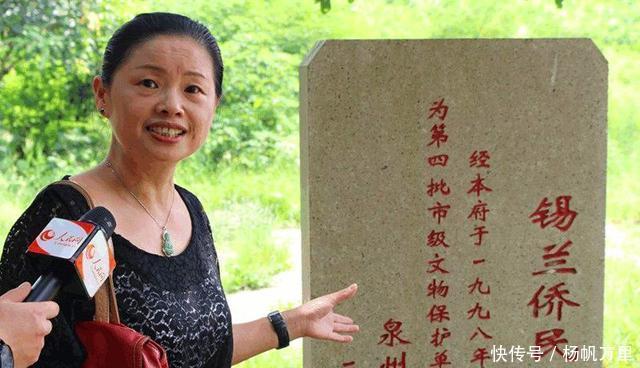 锡兰侨民
经本府于一九九八年
为第四批市级文物保护单
泉州
二
人民网
快传号/杨帆万里